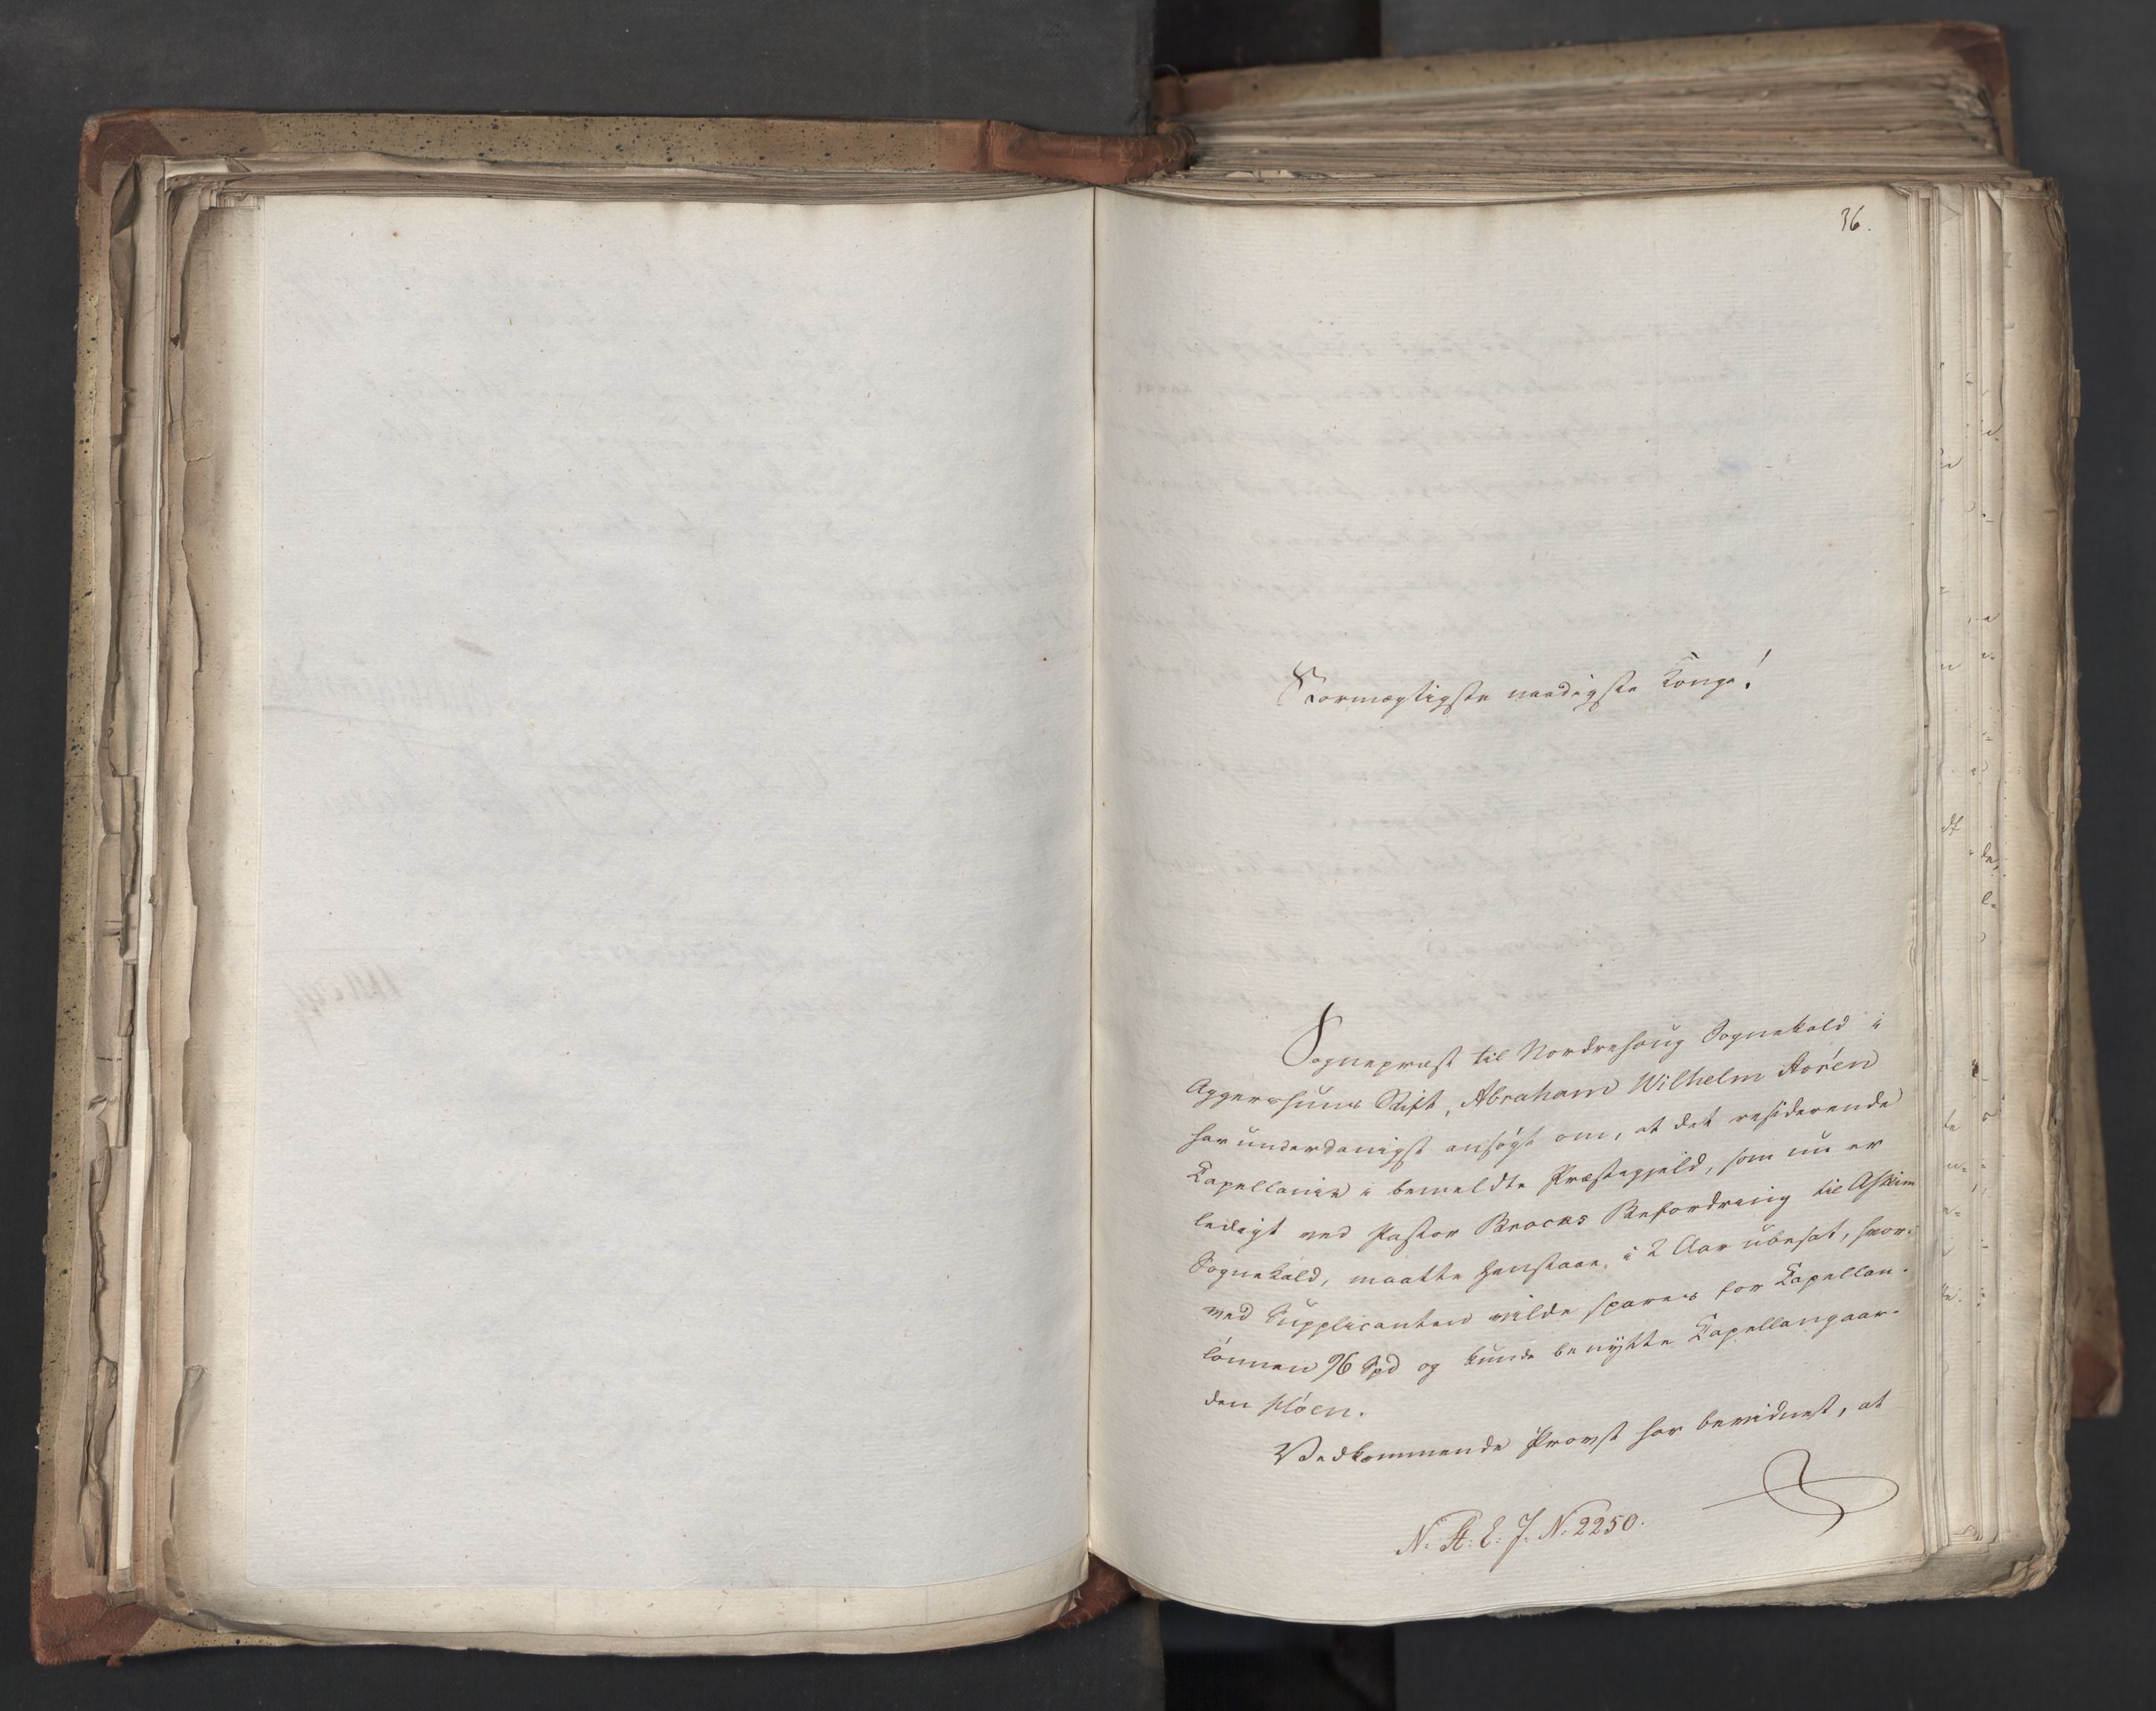 36.
Stormægtigste naadigste Konge!
Sognepræst til Nordrehoug Sognekald i
Aggershuus Stift, Abraham Wilhelm
har underdanigst ansøgt om, at det residerende
Kapellanie i bemeldte Præstegjeld, som nu er
ledigt ved Pastor Brocks Befordring til Askim
Sognekald, maatte henstaae i 2 Aar ubesat, hvor-
ved Supplicanten vilde spares for Kapellan-
lønnen 96 Spd og kunde benytte Kapellangaar-
den Möen.
Vedkommende Provst har bevidnet, at
N. A: E. J. N. 2250.